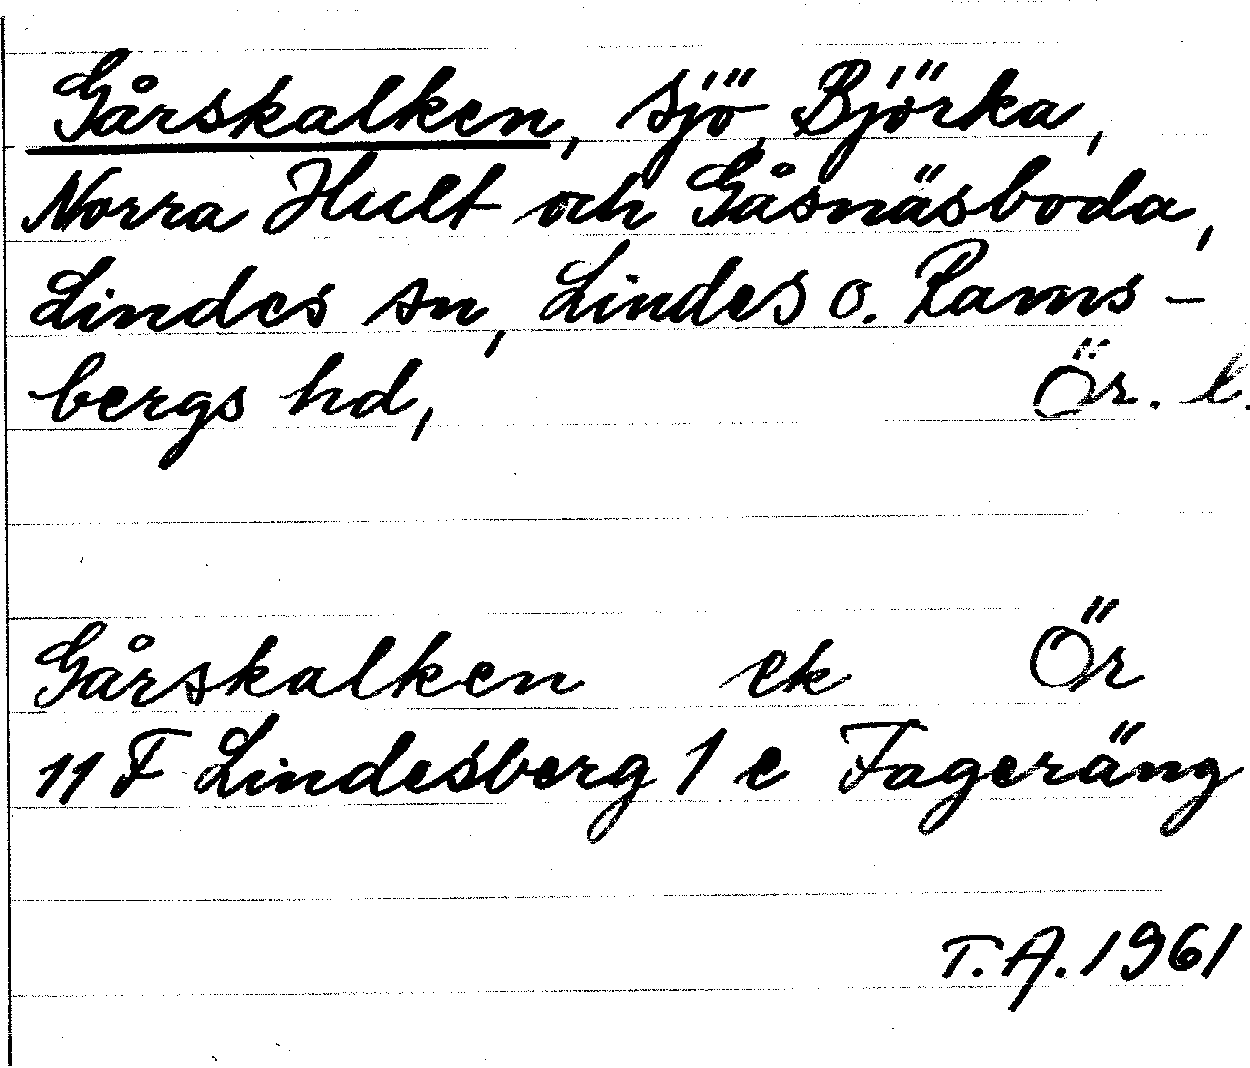 Gårskalken, sjö, Björka,
Norra Hult och Gåsnäsboda,
Lindes sn, Lindes o. Rams-
bergs hd, Ör. l.
Gårskalken ek Ör
11 F Lindesberg 1 e Fageräng
T.A. 1961